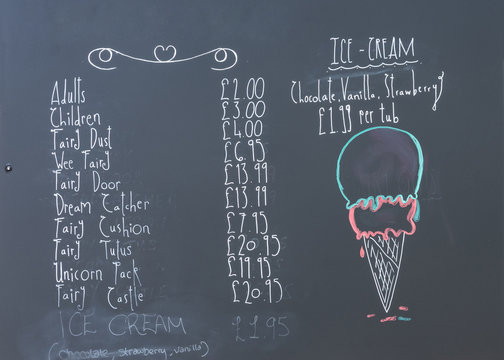 Adults £2.00
Children £3.00
Fairy Dust £4.00
Wee Fairy £6.95
Fairy Door £13.99
Dream Catcher £13.99
Fairy Cushion £7.95
Fairy Tutus £20.95
Unicorn Pack £19.95
Fairy Castle £20.95
ICE CREAM £1.95
(chocolate, strawberry, vanilla)
ICE-CREAM
Chocolate, Vanilla, Strawberry
£1.99 per tub